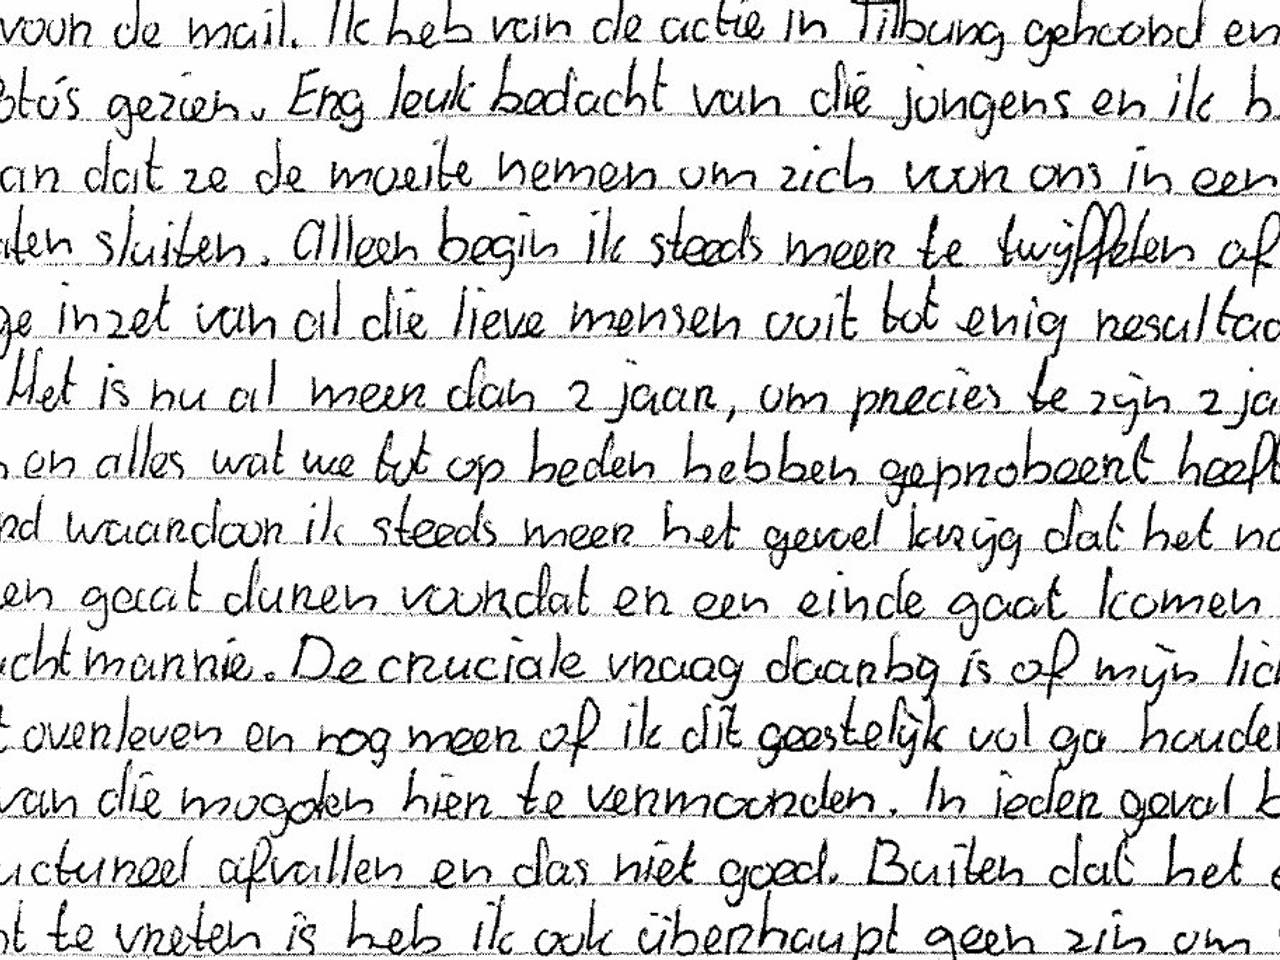 voor de mail. Ik heb van de actie in Tilburg gehoord en
foto's gezien. Erg leuk bedacht van die jongens en ik b
an dat ze de moeite nemen om zich voor ons in een
ten sluiten. Alleen begin ik steeds meer te twijffelen of
ge inzet van al die lieve mensen ooit tot enig resultaa
Het is nu al meer dan 2 jaar, om precies te zijn 2 ja
en alles wat we tot op heden hebben geprobeert heeft
nd waardoor ik steeds meer het gevoel krijg dat het no
en gaat duren voordat er een einde gaat komen
cht mannie. De cruciale vraag daarbij is of mijn lich
t overleven en nog meer of ik dit geestelijk vol ga houden
van die mogolen hier te vermoorden. In ieder geval b
uctureel afvallen en das niet goed. Buiten dat het e
t te vreten is heb ik ook überhaupt geen zin om